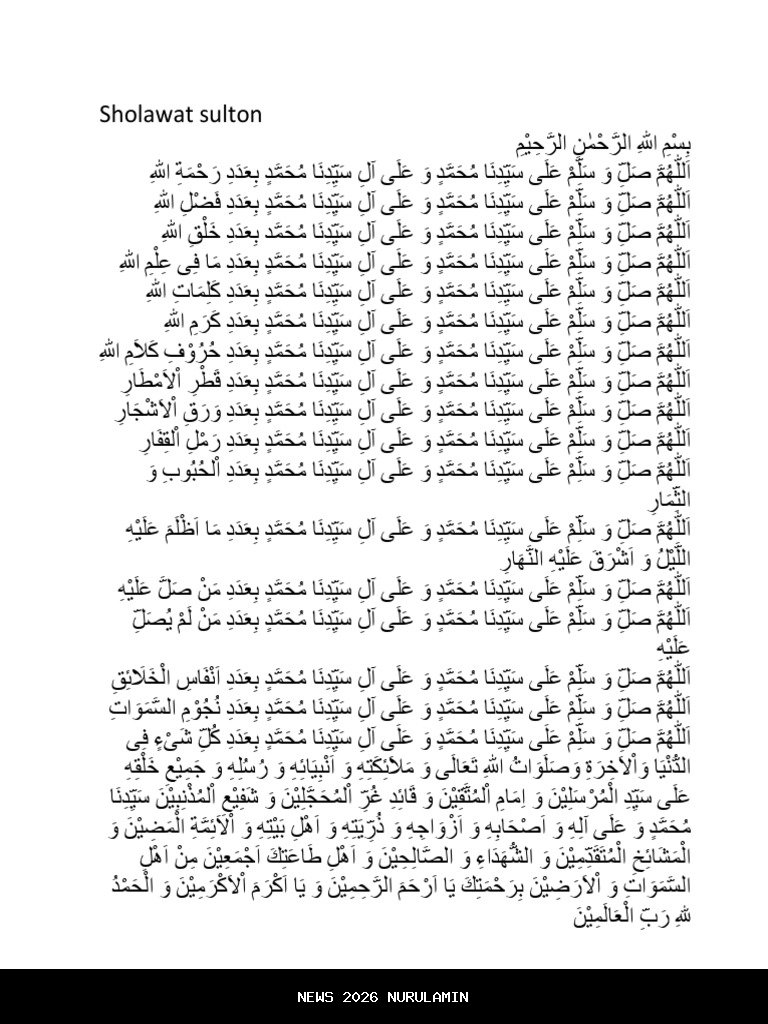 Sholawat sulton
بِسْمِ اللهِ الرَّحْمٰنِ الرَّحِيْمِ
اَللّٰهُمَّ صَلِّ وَ سَلِّمْ عَلَى سَيِّدِنَا مُحَمَّدٍ وَ عَلَى آلِ سَيِّدِنَا مُحَمَّدٍ بِعَدَدِ رَحْمَةِ اللهِ
اَللّٰهُمَّ صَلِّ وَ سَلِّمْ عَلَى سَيِّدِنَا مُحَمَّدٍ وَ عَلَى آلِ سَيِّدِنَا مُحَمَّدٍ بِعَدَدِ فَضْلِ اللهِ
اَللّٰهُمَّ صَلِّ وَ سَلِّمْ عَلَى سَيِّدِنَا مُحَمَّدٍ وَ عَلَى آلِ سَيِّدِنَا مُحَمَّدٍ بِعَدَدِ خَلْقِ اللهِ
اَللّٰهُمَّ صَلِّ وَ سَلِّمْ عَلَى سَيِّدِنَا مُحَمَّدٍ وَ عَلَى آلِ سَيِّدِنَا مُحَمَّدٍ بِعَدَدِ مَا فِى عِلْمِ اللهِ
اَللّٰهُمَّ صَلِّ وَ سَلِّمْ عَلَى سَيِّدِنَا مُحَمَّدٍ وَ عَلَى آلِ سَيِّدِنَا مُحَمَّدٍ بِعَدَدِ كَلِمَاتِ اللهِ
اَللّٰهُمَّ صَلِّ وَ سَلِّمْ عَلَى سَيِّدِنَا مُحَمَّدٍ وَ عَلَى آلِ سَيِّدِنَا مُحَمَّدٍ بِعَدَدِ كَرَمِ اللهِ
اَللّٰهُمَّ صَلِّ وَ سَلِّمْ عَلَى سَيِّدِنَا مُحَمَّدٍ وَ عَلَى آلِ سَيِّدِنَا مُحَمَّدٍ بِعَدَدِ حُرُوْفِ كَلاَمِ اللهِ
اَللّٰهُمَّ صَلِّ وَ سَلِّمْ عَلَى سَيِّدِنَا مُحَمَّدٍ وَ عَلَى آلِ سَيِّدِنَا مُحَمَّدٍ بِعَدَدِ قَطْرِ اْلاَمْطَارِ
اَللّٰهُمَّ صَلِّ وَ سَلِّمْ عَلَى سَيِّدِنَا مُحَمَّدٍ وَ عَلَى آلِ سَيِّدِنَا مُحَمَّدٍ بِعَدَدِ وَرَقِ اْلاَشْجَارِ
اَللّٰهُمَّ صَلِّ وَ سَلِّمْ عَلَى سَيِّدِنَا مُحَمَّدٍ وَ عَلَى آلِ سَيِّدِنَا مُحَمَّدٍ بِعَدَدِ رَمْلِ اْلقِفَارِ
اَللّٰهُمَّ صَلِّ وَ سَلِّمْ عَلَى سَيِّدِنَا مُحَمَّدٍ وَ عَلَى آلِ سَيِّدِنَا مُحَمَّدٍ بِعَدَدِ اْلحُبُوبِ وَ
الثِّمَارِ
اَللّٰهُمَّ صَلِّ وَ سَلِّمْ عَلَى سَيِّدِنَا مُحَمَّدٍ وَ عَلَى آلِ سَيِّدِنَا مُحَمَّدٍ بِعَدَدِ مَا اَظْلَمَ عَلَيْهِ
اللَّيْلُ وَ اَشْرَقَ عَلَيْهِ النَّهَارِ
اَللّٰهُمَّ صَلِّ وَ سَلِّمْ عَلَى سَيِّدِنَا مُحَمَّدٍ وَ عَلَى آلِ سَيِّدِنَا مُحَمَّدٍ بِعَدَدِ مَنْ صَلَّ عَلَيْهِ
اَللّٰهُمَّ صَلِّ وَ سَلِّمْ عَلَى سَيِّدِنَا مُحَمَّدٍ وَ عَلَى آلِ سَيِّدِنَا مُحَمَّدٍ بِعَدَدِ مَنْ لَمْ يُصَلِّ
عَلَيْهِ
اَللّٰهُمَّ صَلِّ وَ سَلِّمْ عَلَى سَيِّدِنَا مُحَمَّدٍ وَ عَلَى آلِ سَيِّدِنَا مُحَمَّدٍ بِعَدَدِ اَنْفَاسِ الْخَلَائِقِ
اَللّٰهُمَّ صَلِّ وَ سَلِّمْ عَلَى سَيِّدِنَا مُحَمَّدٍ وَ عَلَى آلِ سَيِّدِنَا مُحَمَّدٍ بِعَدَدِ نُجُوْمِ السَّمَوَاتِ
اَللّٰهُمَّ صَلِّ وَ سَلِّمْ عَلَى سَيِّدِنَا مُحَمَّدٍ وَ عَلَى آلِ سَيِّدِنَا مُحَمَّدٍ بِعَدَدِ كُلِّ شَىْءٍ فِى
الدُّنْيَا وَاْلاَخِرَةِ وَصَلَوَاتُ اللهِ تَعَالَى وَ مَلاَئِكَتِهِ وَ اَنْبِيَائِهِ وَ رُسُلِهِ وَ جَمِيْعِ خَلْقِهِ
عَلَى سَيِّدِ الْمُرْسَلِيْنَ وَ اِمَامِ اْلمُتَّقِيْنَ وَ قَائِدِ غُرِّ اْلمُحَجَّلِيْنَ وَ شَفِيْعِ اْلمُذْنِبِيْنَ سَيِّدِنَا
مُحَمَّدٍ وَ عَلَى آلِهِ وَ اَصْحَابِهِ وَ اَزْوَاجِهِ وَ ذُرِّيَتِهِ وَ اَهْلِ بَيْتِهِ وَ اْلاَئِمَّةِ الْمَضِيْنَ وَ
الْمَشَائِخِ الْمُتَقَدِّمِيْنَ وَ الشُّهَدَاءِ وَ الصَّالِحِيْنَ وَ اَهْلِ طَاعَتِكَ اَجْمَعِيْنَ مِنْ اَهْلِ
السَّمَوَاتِ وَ اْلاَرَضِيْنَ بِرَحْمَتِكَ يَا اَرْحَمَ الرَّحِمِيْنَ وَ يَا اَكْرَمَ اْلاَكْرَمِيْنَ وَ الْحَمْدُ
للهِ رَبِّ الْعَالَمِيْنَ
NEWS 2026 NURULAMIN